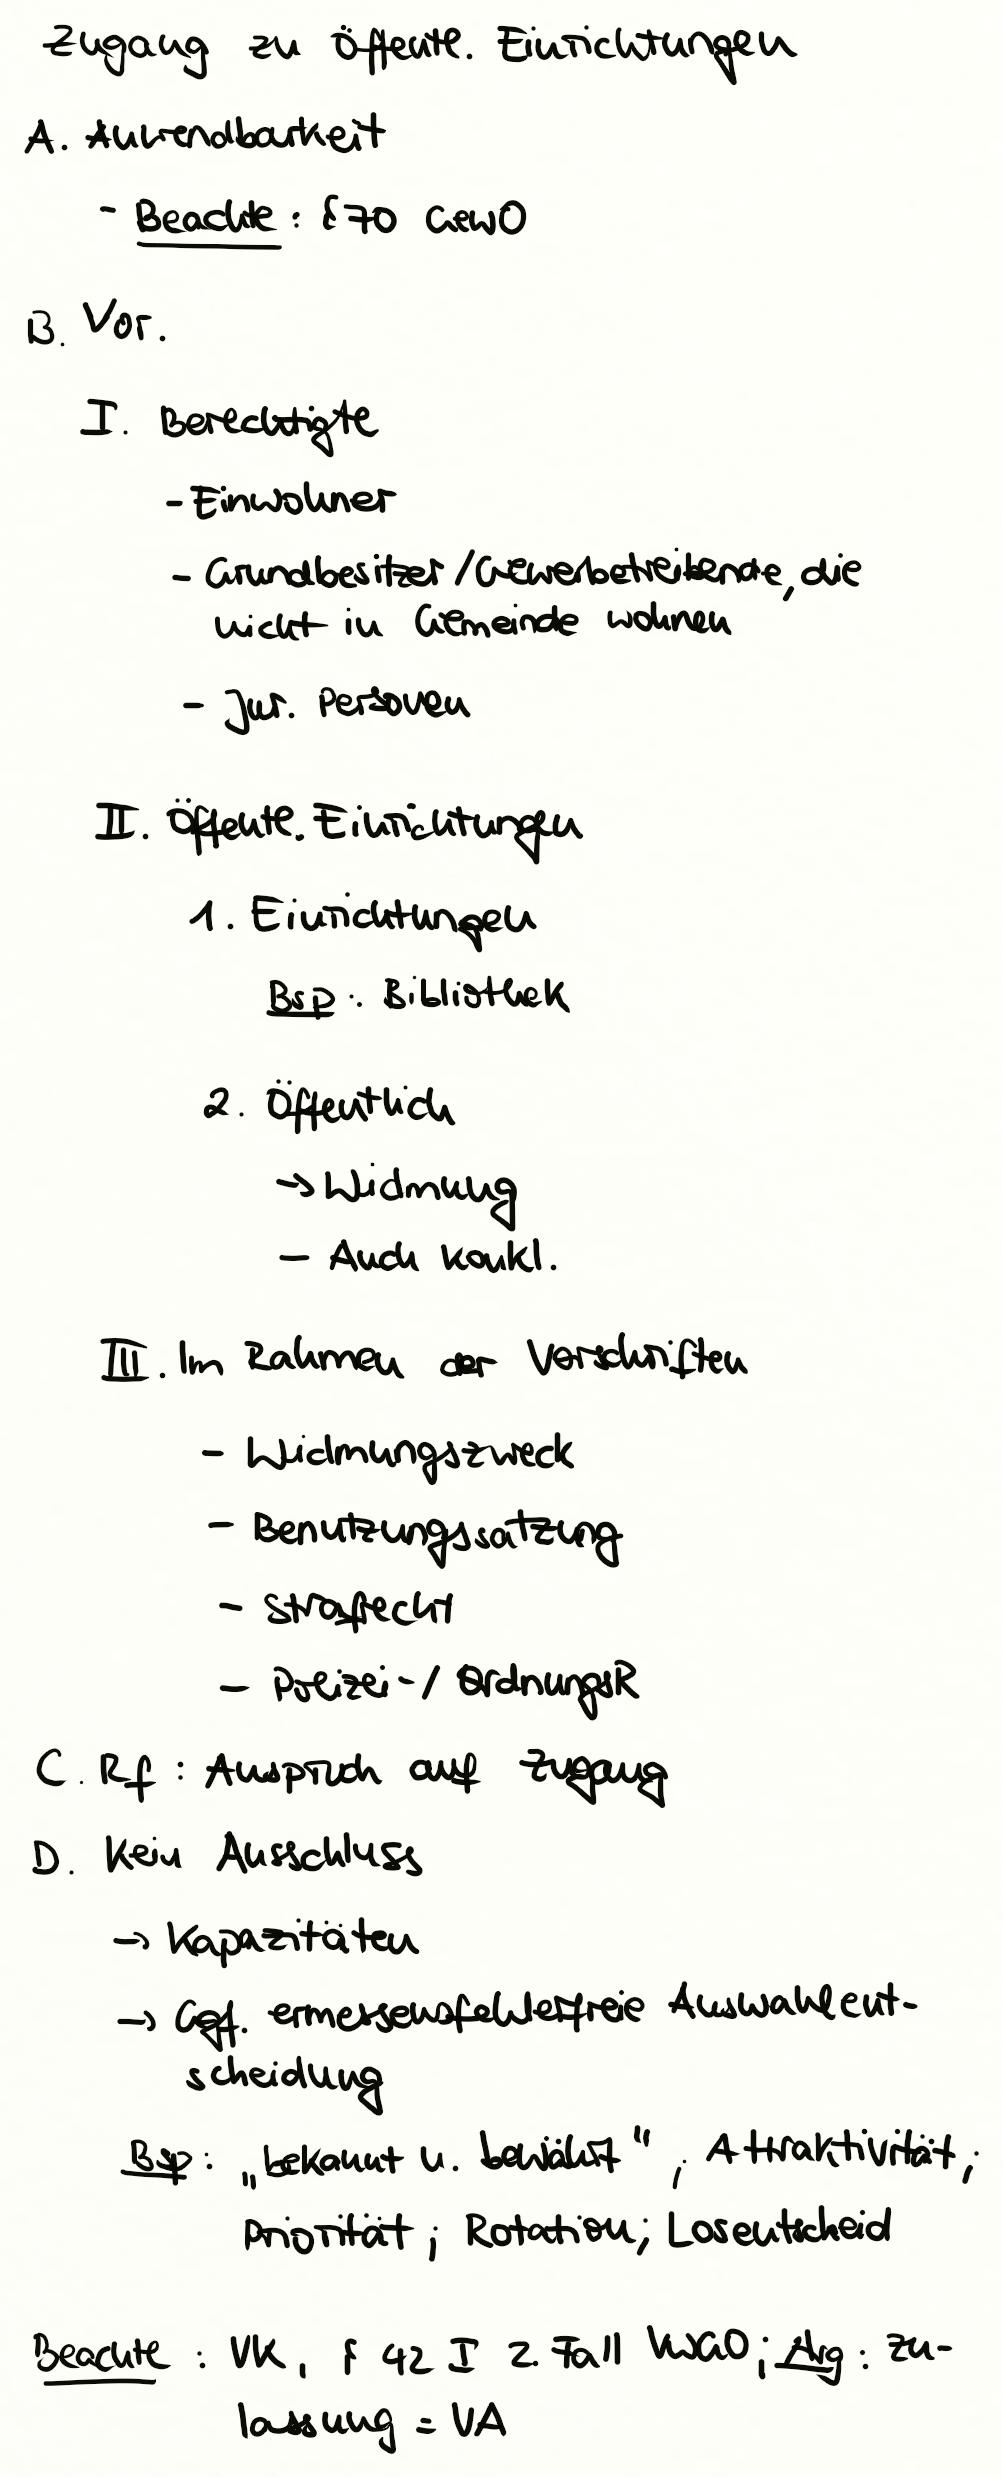 Zugang zu öffentl. Einrichtungen
A. Anwendbarkeit
- Beachte: § 70 GewO
B. Vor.
I. Berechtigte
- Einwohner
- Grundbesitzer/Gewerbetreibende, die
nicht in Gemeinde wohnen
- Jur. Personen
II. Öffentl. Einrichtungen
1. Einrichtungen
Bsp.: Bibliothek
2. Öffentlich
→ Widmung
- Auch konkl.
III. Im Rahmen der Vorschriften
- Widmungszweck
- Benutzungssatzung
- Strafrecht
- Polizei-/OrdnungsR
C. Rf: Anspruch auf Zugang
D. Kein Ausschluss
→ Kapazitäten
→ Ggf. ermessensfehlerfreie Auswahlent-
scheidung
Bsp: „bekannt u. bewährt“; Attraktivität;
Priorität; Rotation; Losentscheid
Beachte: VK, § 42 I 2. Fall VwGO; Arg: Zu-
lassung = VA